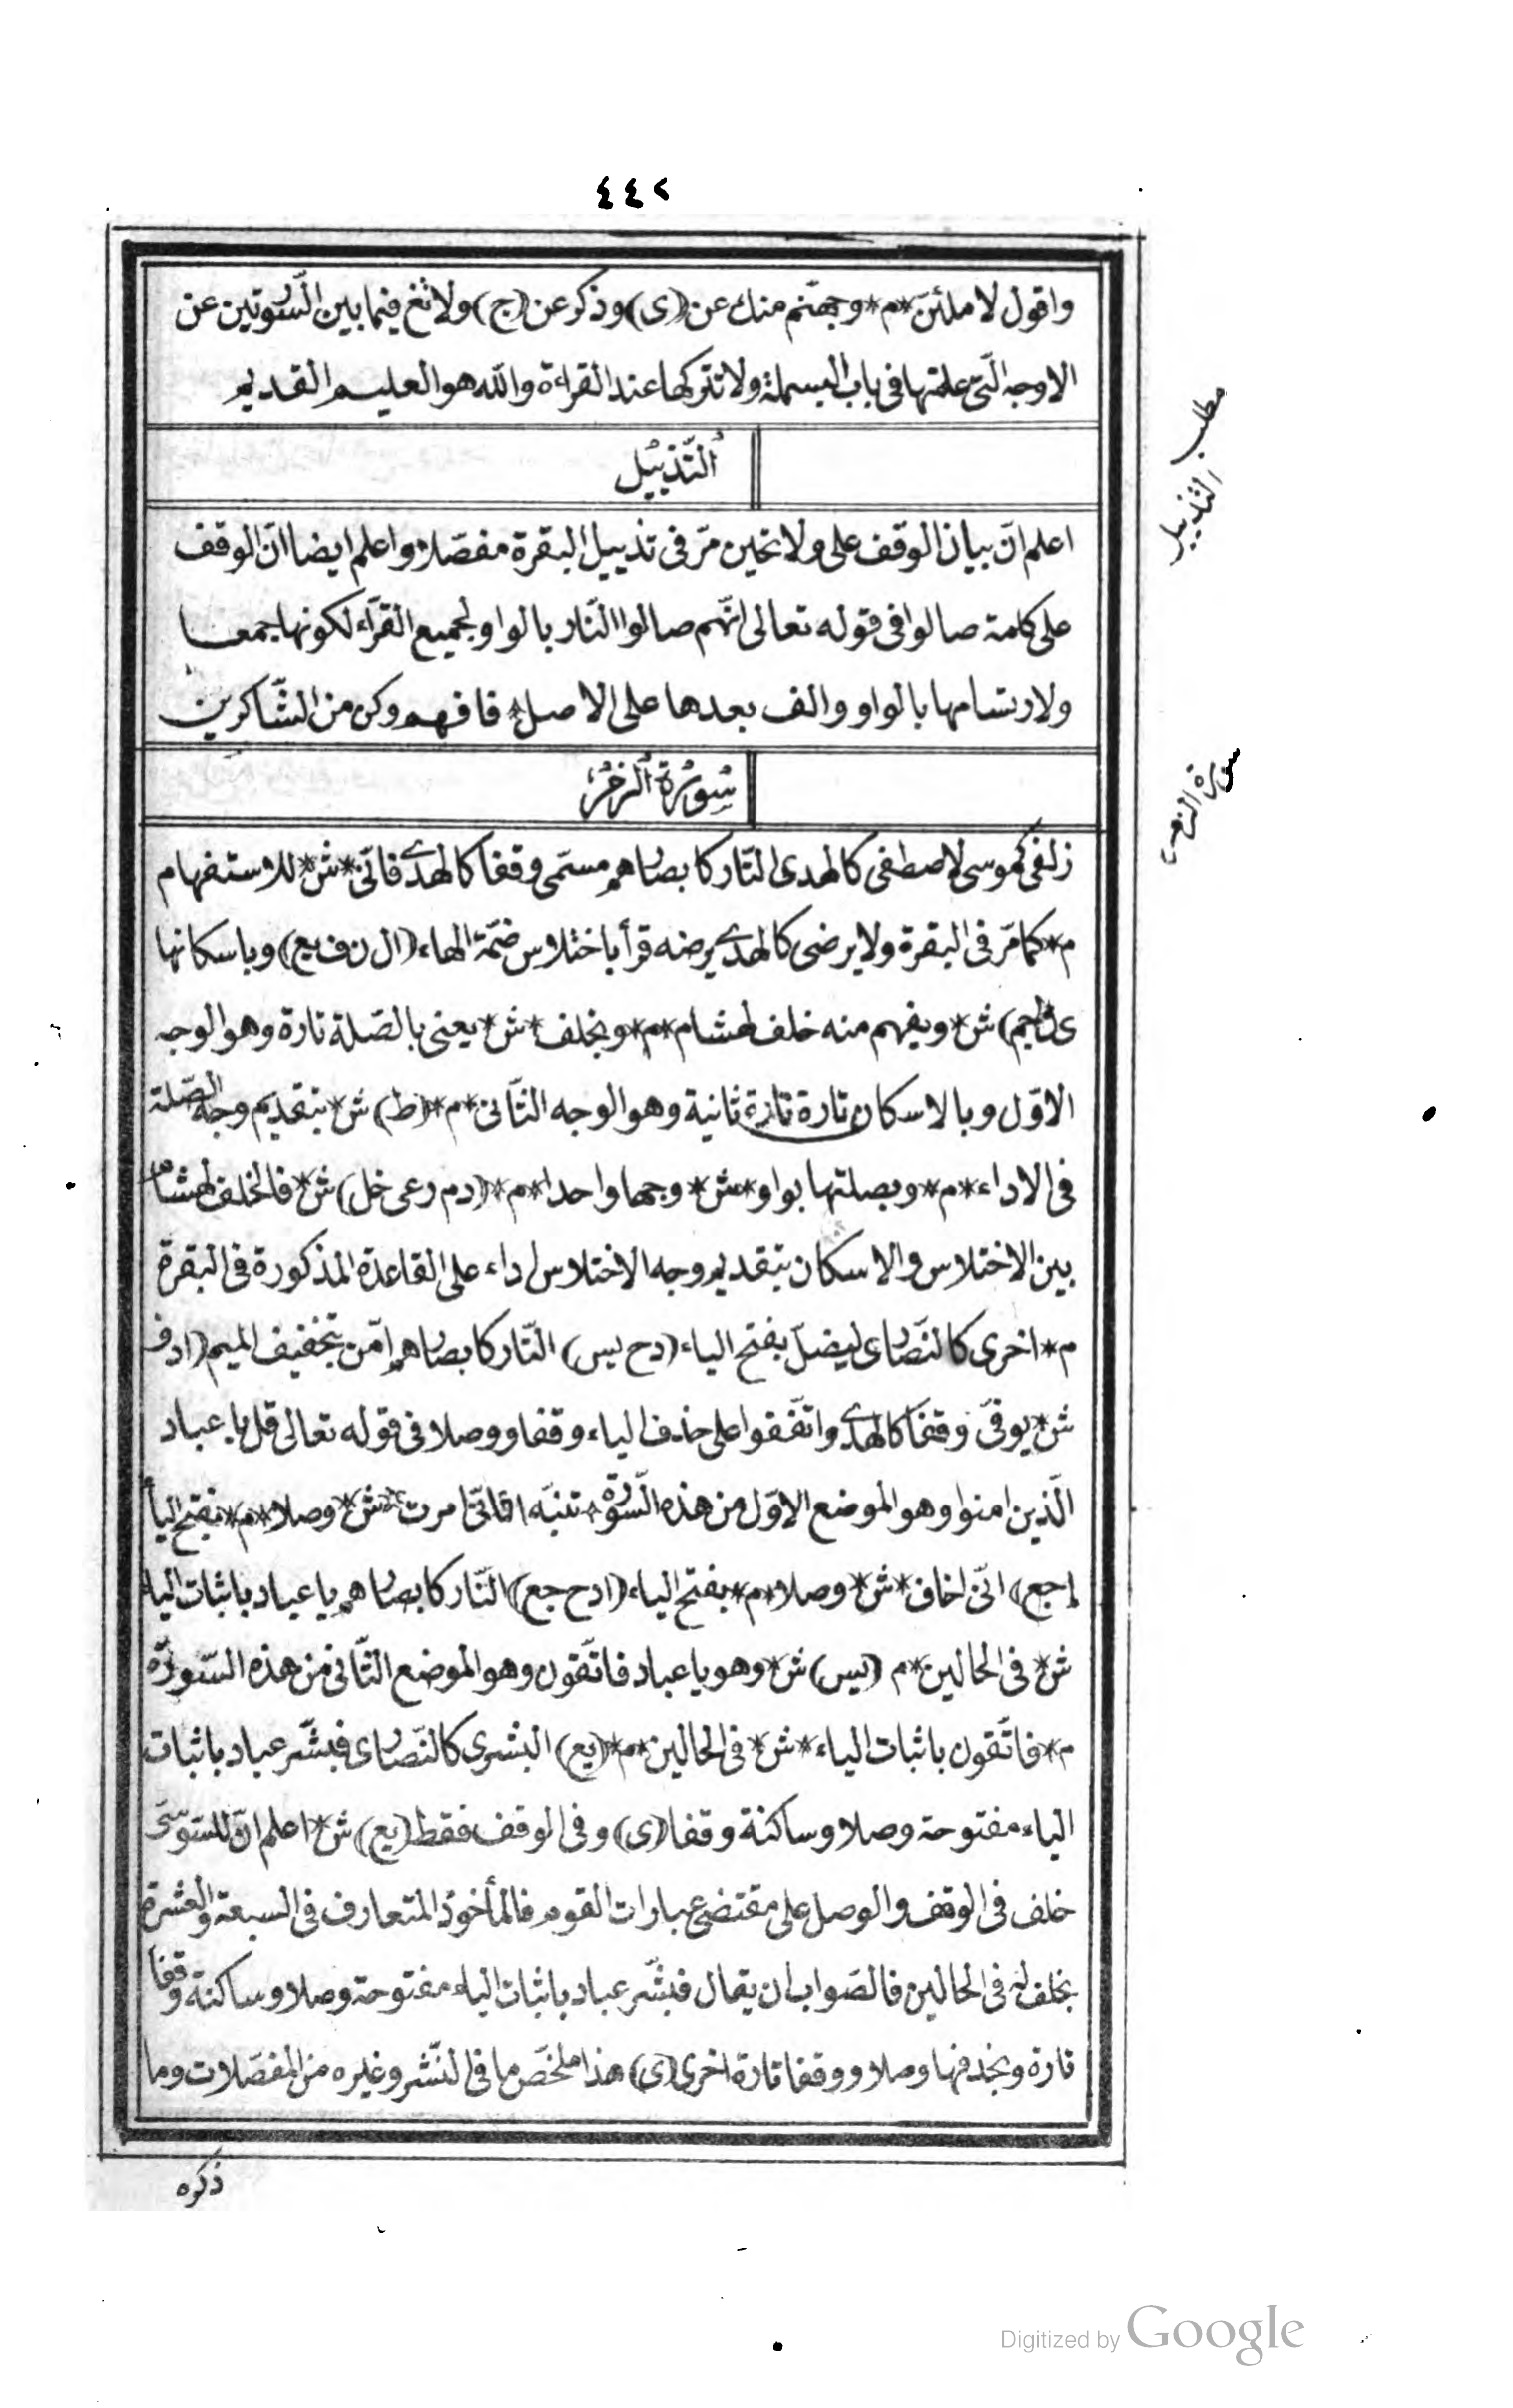 ٤٤٢
واقول لاملئن*م*وجهنم منك عن (ى) وذكر عن (ج) ولا تغ فيما بين السّورتين عن
الاوجه الّتى علمتها فى باب البسملة ولا تتركها عند القراءة والله هو العليم القديم
مطلب التذييل
اَلتَّذْيِيْل
اعلم انّ بيان الوقف على ولات حين مرّ فى تذييل البقرة مفصّلا واعلم ايضا انّ الوقف
على كلمة صالوا فى قوله تعالى انّهم صالوا النّار بالواو لجميع القرّاء لكونها جمعا
ولارتسامها بالواو والف بعدها على الاصل فافهم وكن من الشّاكرين
سورة الزمر
سُورَةُ اَلزُّمَرِ
زلفى كموسى لاصطفى كالهدى النّار كابصارهم مسمّى وقفا كالهدى فانّى*ش*للاستفهام
م*كما مرّ فى البقرة ولا يرضى كالهدى يرضه قرأ باختلاس ضمّة الهاء (ال ن ف يع) وباسكانها
ش*ويفهم منه خلف لهشام*م*وبخلف*ش*يعنى بالصّلة تارة وهو الوجه
الاوّل وبالاسكان تارة تارة ثانية وهو الوجه الثّانى*م*(ط) ش*بتقديم وجه الصّلة
فى الاداء*م*وبصلتها بواو*ش*وجها واحدا*م*(دم رعى خل) ش*فالخلف لهشام
بين الاختلاس والاسكان بتقديم وجه الاختلاس اداء على القاعدة المذكورة فى البقرة
م*اخرى كالنّصارى ليضلّ بفتح الياء (دح يس) النّار كابصارهم امّن بتخفيف الميم (ادف
ش*يوفّى وقفا كالهدى واتّفقوا على حذف الياء وقفا ووصلا فى قوله تعالى قل يا عباد
الّذين امنوا وهو الموضع الاوّل من هذه السّورة*تنبّه انّى امرت*ش*وصلا*م*بفتح اليأ
(اجع) انّى اخاف*ش*وصلا*م*بفتح الياء (ادح جع) النّار كابصارهم يا عباد باثبات اليا
ش*فى الحالين*م (يس) ش*وهو يا عباد فاتّقون وهو الموضع الثّانى من هذه السّورة
م*فاتّقون باثبات الياء*ش*فى الحالين*م*(يع) البشرى كالنّصارى فبشّر عباد باثبات
الياء مفتوحة وصلا وساكنة وقفا (ى) وفى الوقف فقط (يع) ش*اعلم انّ للسّوسى
خلف فى الوقف والوصل على مقتضى عبارات القوم فالمأخوذ المتعارف فى السبعة والعشرة
بخلف له فى الحالين فالصّواب ان يقال فبشّر عباد باثبات الياء مفتوحة وصلا وساكنة وقفا
تارة وبحذفها وصلا ووقفا تارة اخرى (ى) هذا ملخّص ما فى النّشر وغيره من المفصّلات وما
ذكره
Digitized by Google